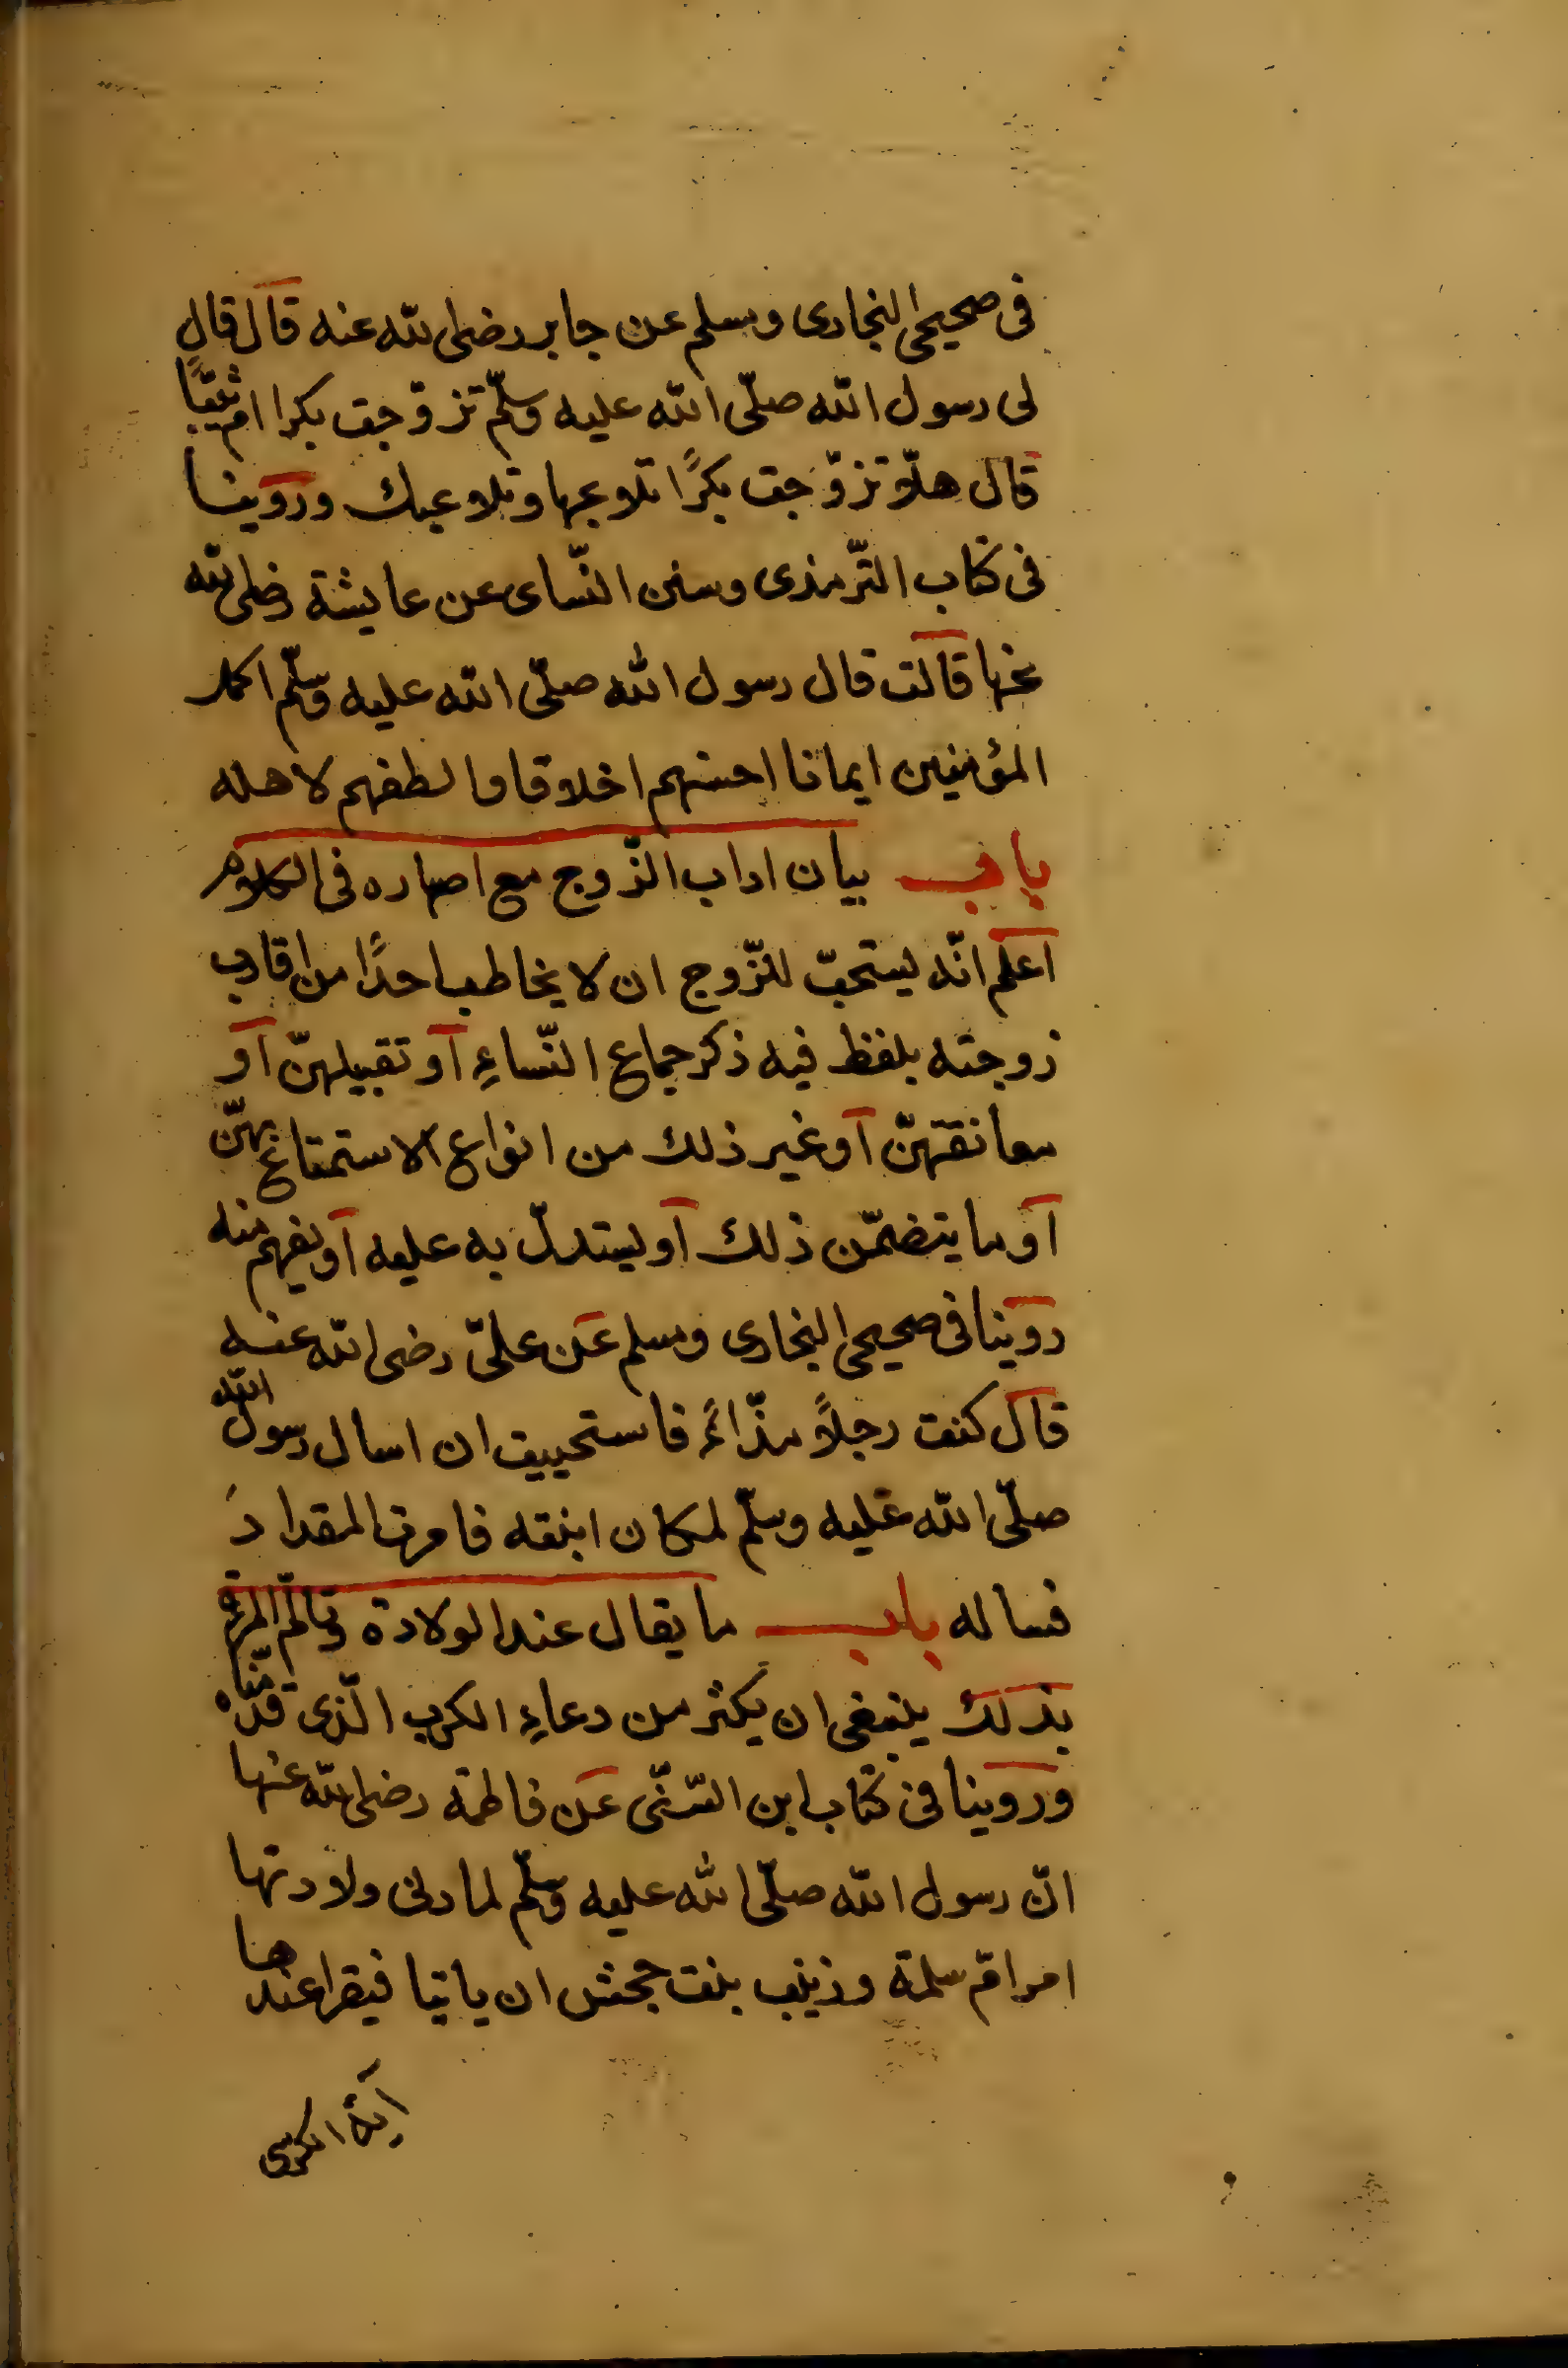 فى صحيحى البخارى ومسلم عن جابر رضى الله عنه قال قال
لى رسول الله صلّى الله عليه وسلّم تزوّجت بكرا ام ثيّبًا
قال هلّا تزوّجت بكرًا تلاعبها وتلاعبك وروينا
فى كتاب الترّمذى وسنن النّساى عن عايشة رضى الله
عنها قالت قال رسول الله صلّى الله عليه وسلّم اكمل
المؤمنين ايمانا احسنهم اخلاقا والطفهم لاهله
باب بيان اداب الزّوج مع اصهاره فى الكلام
اعلم انّه يستحبّ للزّوج ان لا يخاطب احدًا من اقارب
زوجته بلفظ فيه ذكر جماع النّساءِ او تقبيلهنّ او
معانقتهنّ او غير ذلك من انواع الاستمتاع بهنّ
او ما يتضمّن ذلك او يستدلّ به عليه او يفهم منه
روينا فى صحيحى البخارى ومسلم عن علىّ رضى الله عنه
قال كنت رجلاً مذّاءً فاستحييت ان اسال رسول الله
صلّى الله عليه وسلّم لمكان ابنته فامرت المقدادَ
فساله باب ما يقال عند الولادة وتالّم المرءة
بذلك ينبغى ان يكثر من دعاءِ الكرب الّذى قدّمناه
وروينا فى كتاب ابن السّنّى عن فاطمة رضى الله عنها
انّ رسول الله صلّى الله عليه وسلّم لما دنى ولادتها
امر امّ سلمة وزينب بنت جحش ان ياتيا فيقرا عندها
اية الكرسى